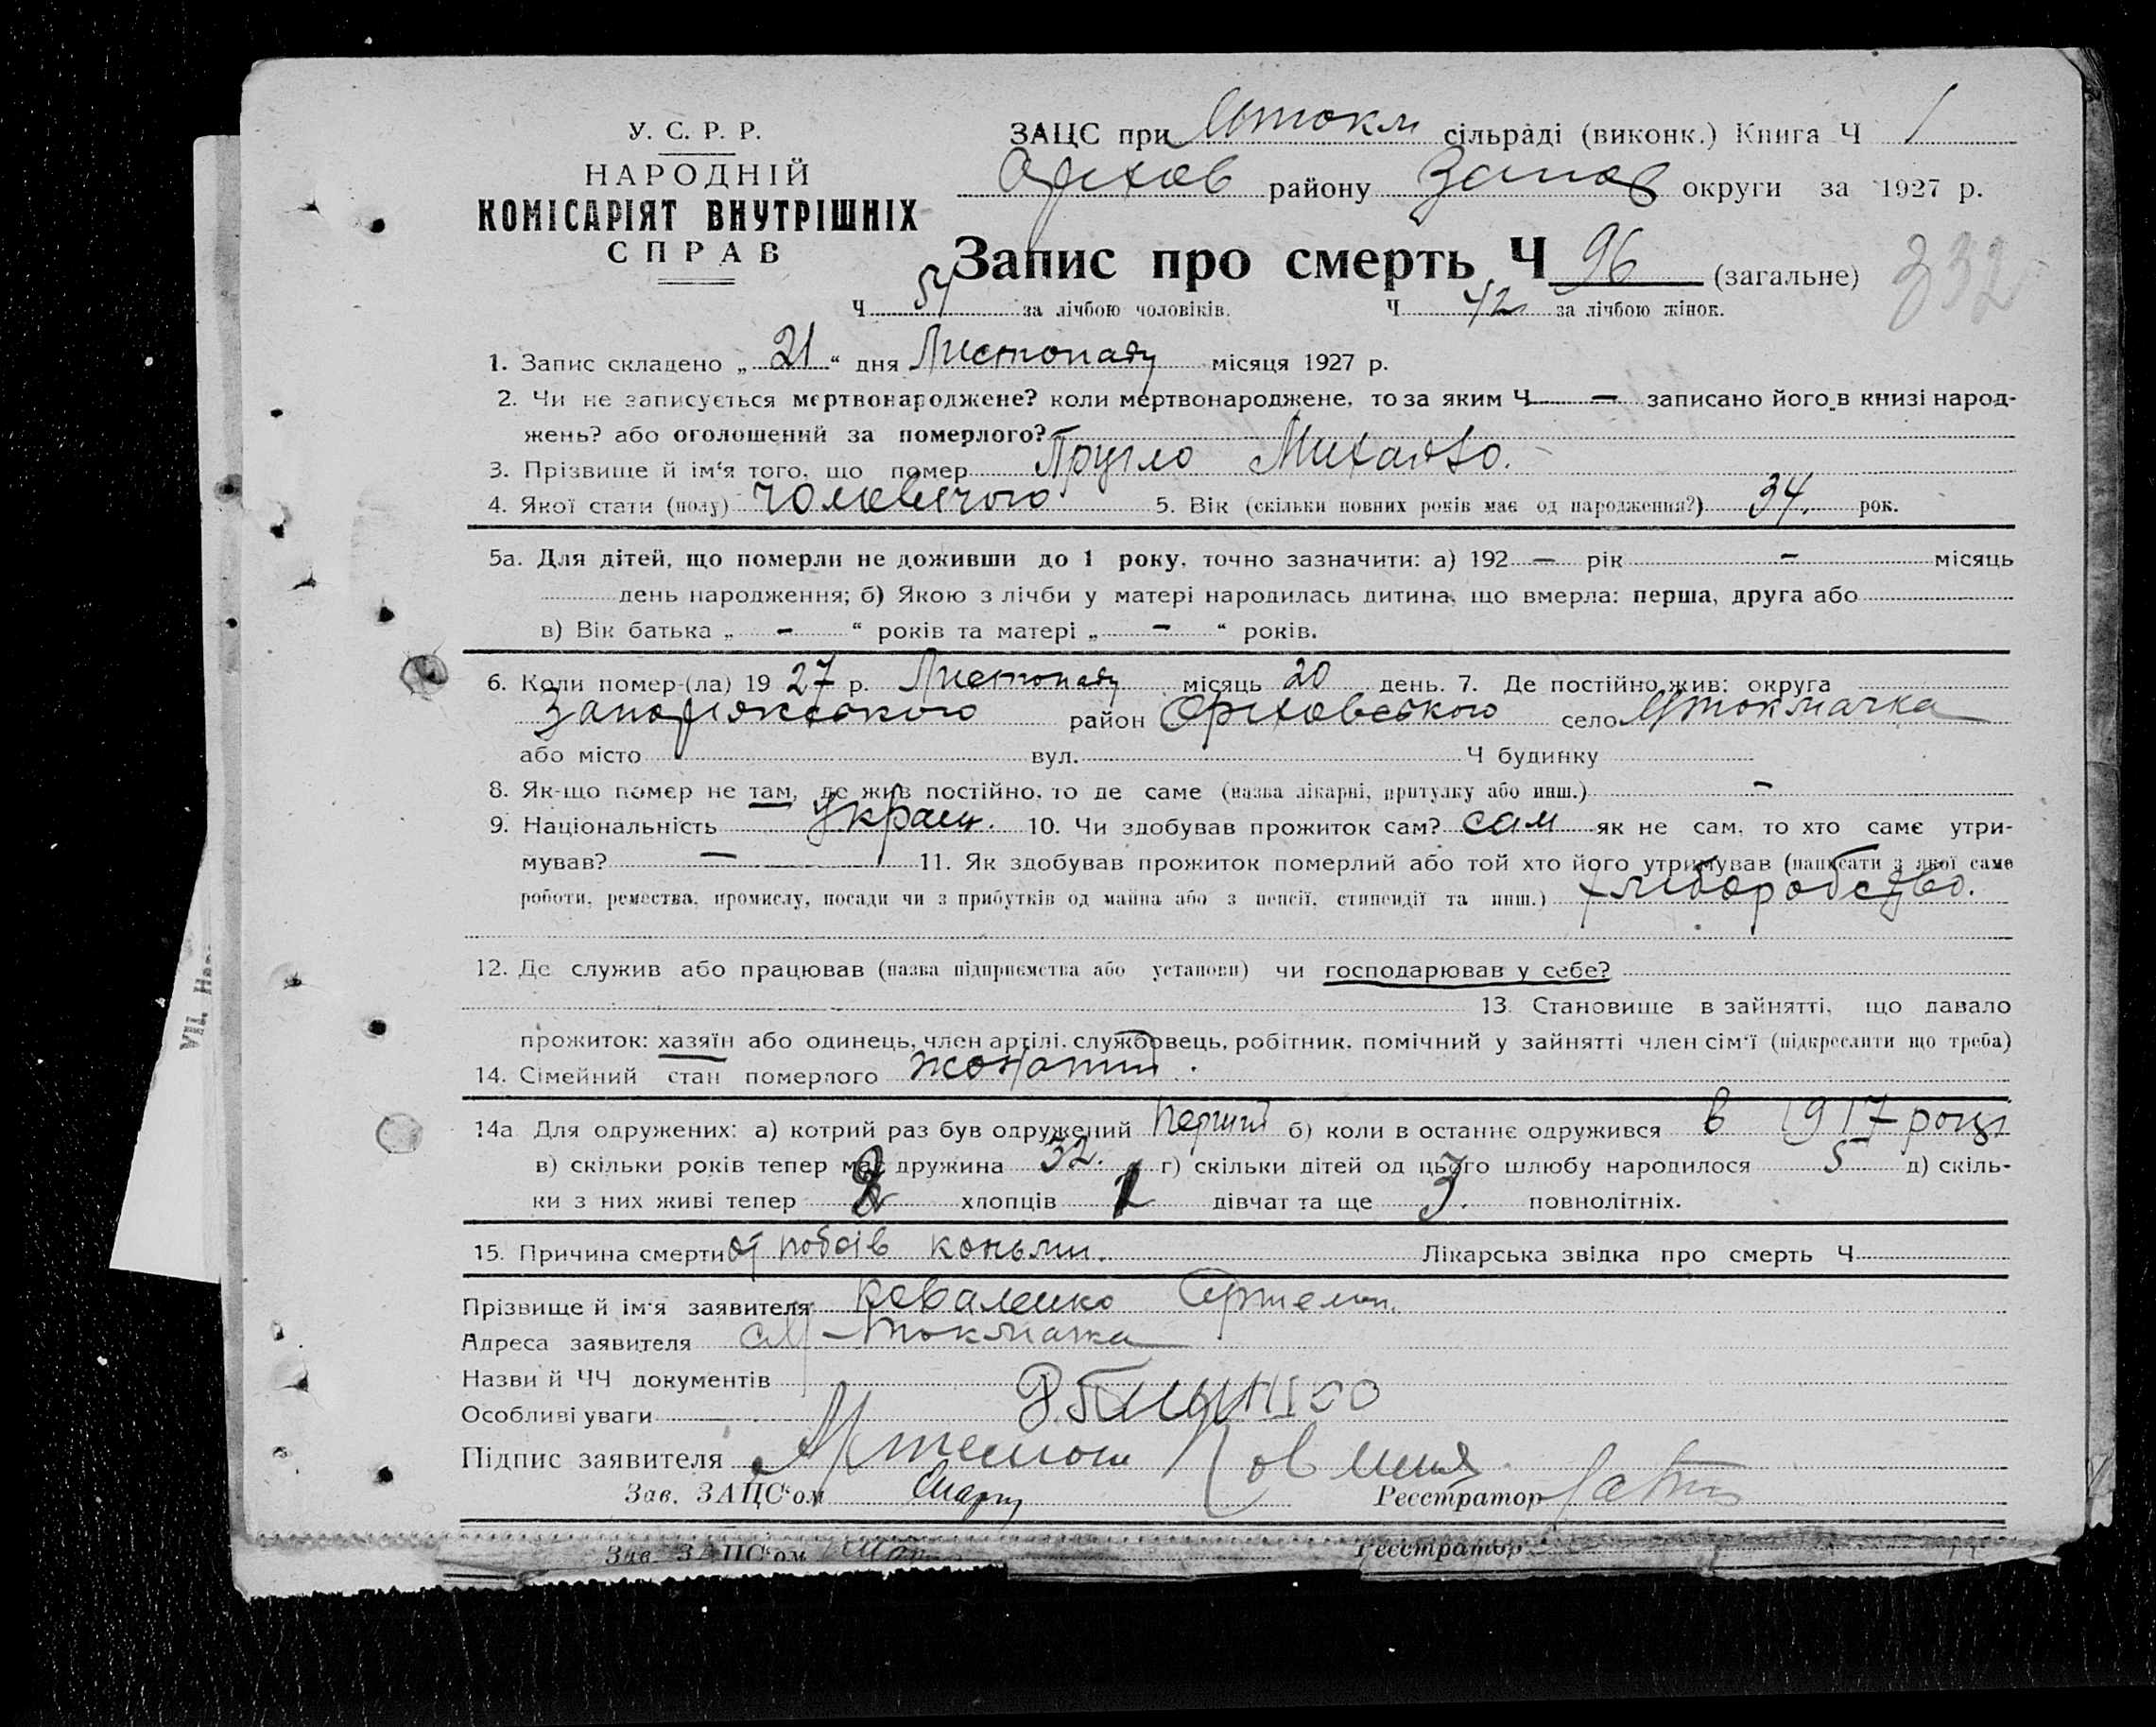 У. С. Р. Р.
НАРОДНІЙ
КОМІСАРІЯТ ВНУТРІШНІХ
СПРАВ
ЗАЦС при Мтокм сільраді (виконк.) Книга Ч 1
Оріхов району Запор округи за 1927 р.
Запис про смерть Ч 96 (загальне) 332
Ч 54 за лічбою чоловіків. Ч 42 за лічбою жінок.
1. Запис складено „ 21 “ дня Листопаду місяця 1927 р.
2. Чи не записується мертвонароджене? коли мертвонароджене, то за яким Ч — записано його в книзі народ-
жень? або оголошений за померлого?
3. Прізвище й ім'я того, що помер Пругло Михайло.
4. Якої стати (полу) чоловічого 5. Вік (скільки повних років має од народження?) 34. рок.
5а. Для дітей, що померли не доживши до 1 року, точно зазначити: а) 192 — рік — місяць
день народження; б) Якою з лічби у матері народилась дитина, що вмерла: перша, друга або
в) Вік батька „ — “ років та матері „ — “ років.
6. Коли помер-(ла) 19 27 р. Листопаду місяць 20 день. 7. Де постійно жив: округа
Запоріжського район Оріховського село Мтокмачка
або місто вул. Ч будинку
8. Як-що помер не там, де жив постійно, то де саме (назва лікарні, притулку або инш.) —
9. Національність Україн. 10. Чи здобував прожиток сам? сам як не сам, то хто саме утри-
мував? — 11. Як здобував прожиток померлий або той хто його утримував (написати з якої саме
роботи, ремества, промислу, посади чи з прибутків од майна або з пенсії, стипендії та инш.) хліборобство.
12. Де служив або працював (назва підприємства або установи) чи господарював у себе?
13. Становище в зайнятті, що давало
прожиток: хазяїн або одинець, член артілі, службовець, робітник, помічний у зайнятті член сім'ї (підкреслити що треба)
14. Сімейний стан померлого жонатий.
14а Для одружених: а) котрий раз був одружений перший б) коли в останнє одружився в 1917 році
в) скільки років тепер має дружина 32. г) скільки дітей од цього шлюбу народилося 5 д) скіль-
ки з них живі тепер 2 хлопців 1 дівчат та ще 3. повнолітніх.
15. Причина смерти от побоїв коньми. Лікарська звідка про смерть Ч
Прізвище й ім'я заявителя Коваленко Артемон.
Адреса заявителя с М-токмачка
Назви й ЧЧ документів
Особливі уваги
Підпис заявителя Артемон
Зав. ЗАЦС'ом Реєстратор
Зав. ЗАЦС'ом Реєстратор